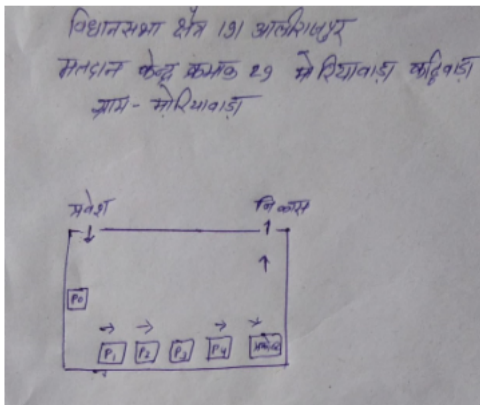 विधानसभा क्षेत्र 191 अलीराजपुर
मतदान केन्द्र क्रमांक 29 मोरियावाड़ा कट्ठिवाड़ा
ग्राम - मोरियावाड़ा
प्रवेश निकास
P0
P1 P2 P3 P4